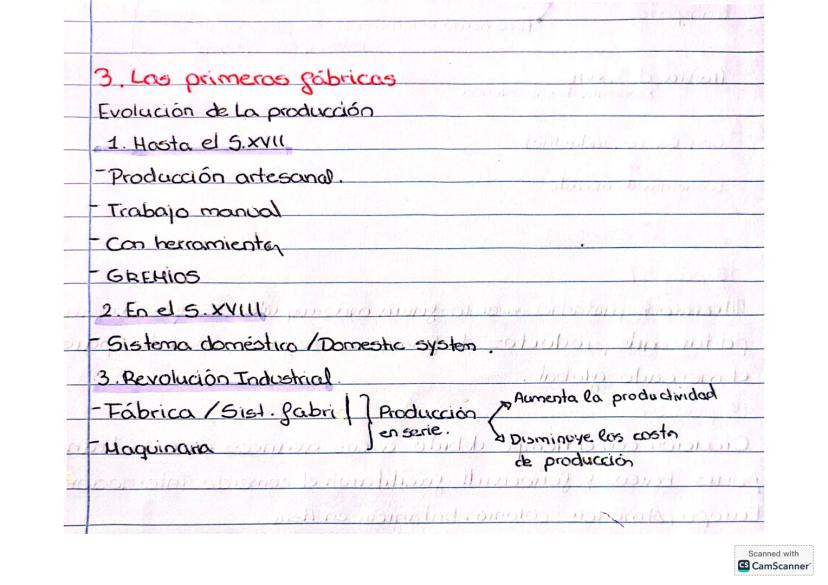 3. Las primeras fábricas
Evolución de La producción
1. Hasta el S.XVII
- Producción artesanal.
- Trabajo manual
- Con herramientas
- GREMIOS
2. En el S. XVIII
- Sistema doméstico / Domestic system.
3. Revolución Industrial.
- Fábrica / Sist. fabril
- Maquinaria
Producción
en serie.
Aumenta la productividad
Disminuye los costes
de producción
Scanned with
CS CamScanner